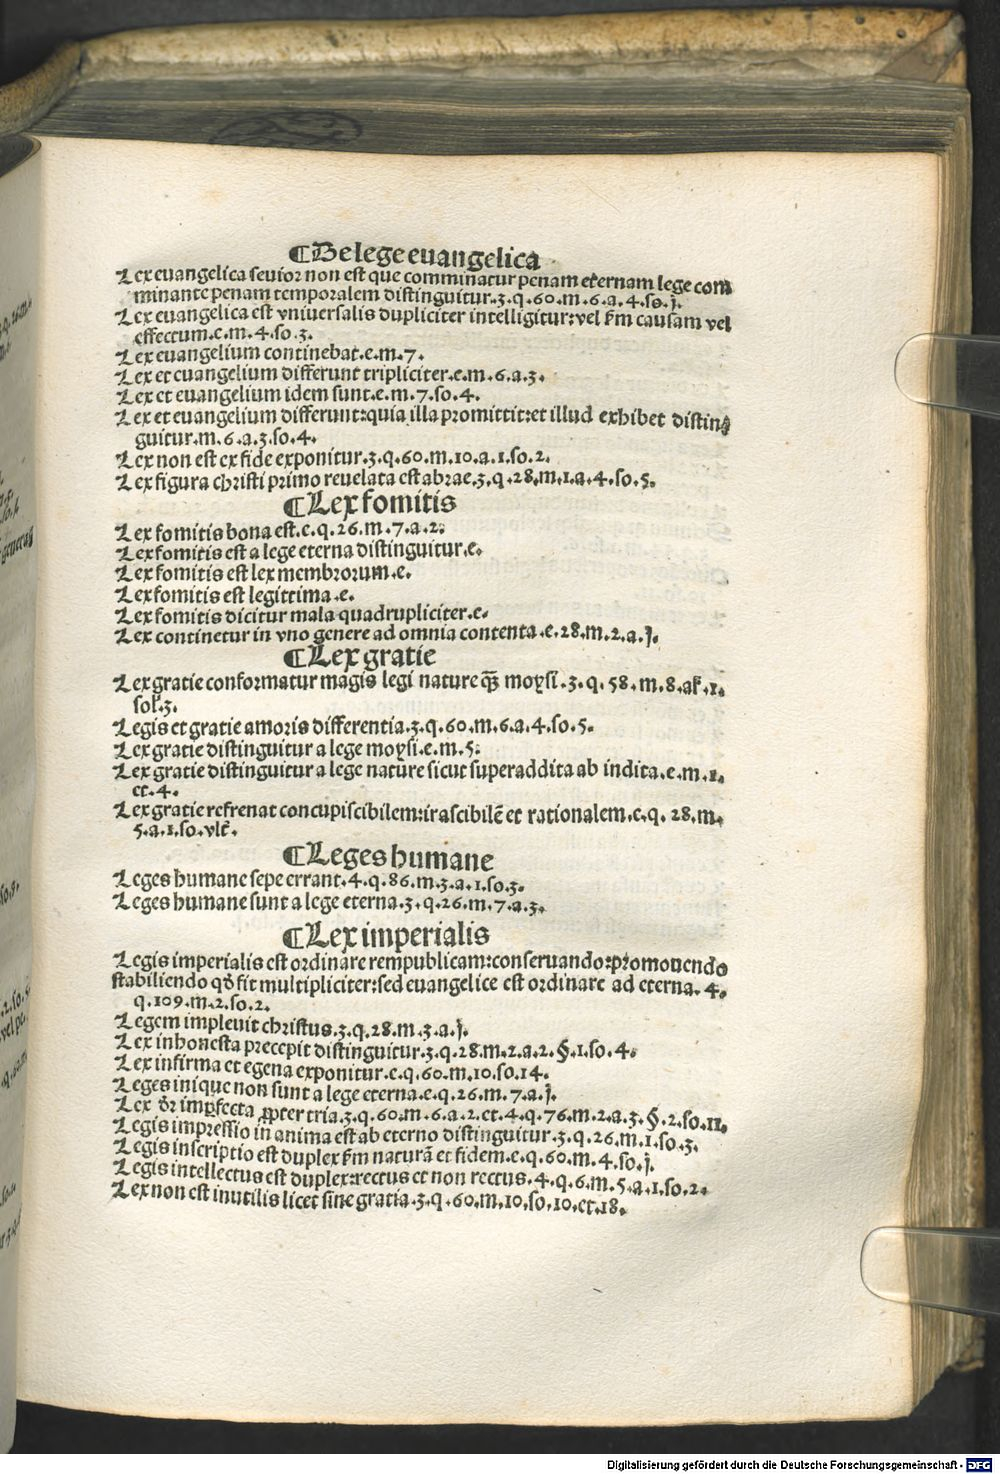 ¶De lege euangelica
Lex euangelica seuior non est que comminatur penam eternam lege com
minante penam temporalem distinguitur.3.q.60.m.6.a.4.so.j.
Lex euangelica est vniuersalis dupliciter intelligitur:vel ẜm causam vel
effectum.e.m.4.so.3.
Lex euangelium continebat.e.m.7.
Lex et euangelium differunt tripliciter.e.m.6.a.3.
Lex et euangelium idem sunt.e.m.7.so.4.
Lex et euangelium differunt:quia illa promittit:et illud exhibet distin
guitur.m.6.a.3.so.4.
Lex non est ex fide exponitur.3.q.60.m.10.a.1.so.2.
Lex figura christi primo reuelata est abrae.3.q.28.m.1.a.4.so.5.
¶Lex fomitis
Lex fomitis bona est.e.q.26.m.7.a.2.
Lex fomitis est a lege eterna distinguitur.e.
Lex fomitis est lex membrorum.e.
Lex fomitis est legittima.e.
Lex fomitis dicitur mala quadrupliciter.e.
Lex continetur in vno genere ad omnia contenta.e.28.m.2.a.j.
¶Lex gratie
Lex gratie conformatur magis legi nature q̃ moysi.3.q.58.m.8.aꝉ.1.
soꝉ.3.
Legis et gratie amoris differentia.3.q.60.m.6.a.4.so.5.
Lex gratie distinguitur a lege moysi.e.m.5.
Lex gratie distinguitur a lege nature sicut superaddita ab indita.e.m.1.
et.4.
Lex gratie refrenat concupiscibilem:irascibilẽ et rationalem.e.q.28.m.
5.a.1.so.vlt̃.
¶Leges humane
Leges humane sepe errant.4.q.86.m.3.a.1.so.3.
Leges humane sunt a lege eterna.3.q.26.m.7.a.3.
¶Lex imperialis
Legis imperialis est ordinare rempublicam:conseruando:promouendo
stabiliendo qđ fit multipliciter:sed euangelice est ordinare ad eterna.4.
q.109.m.2.so.2.
Legem impleuit christus.3.q.28.m.3.a.j.
Lex inhonesta precepit distinguitur.3.q.28.m.2.a.2.§.1.so.4.
Lex infirma et egena exponitur.e.q.60.m.10.so.14.
Leges inique non sunt a lege eterna.e.q.26.m.7.a.j.
Lex dr̃ imꝑfecta ꝓpter tria.3.q.60.m.6.a.2.et.4.q.76.m.2.a.3.§.2.so.11.
Legis impressio in anima est ab eterno distinguitur.3.q.26.m.1.so.3.
Legis inscriptio est duplex ẜm naturã et fidem.e.q.60.m.4.so.j.
Legis intellectus est duplex:rectus et non rectus.4.q.6.m.5.a.1.so.2.
Lex non est inutilis licet sine gratia.3.q.60.m.10.so.10.et.18.
Digitalisierung gefördert durch die Deutsche Forschungsgemeinschaft - DFG